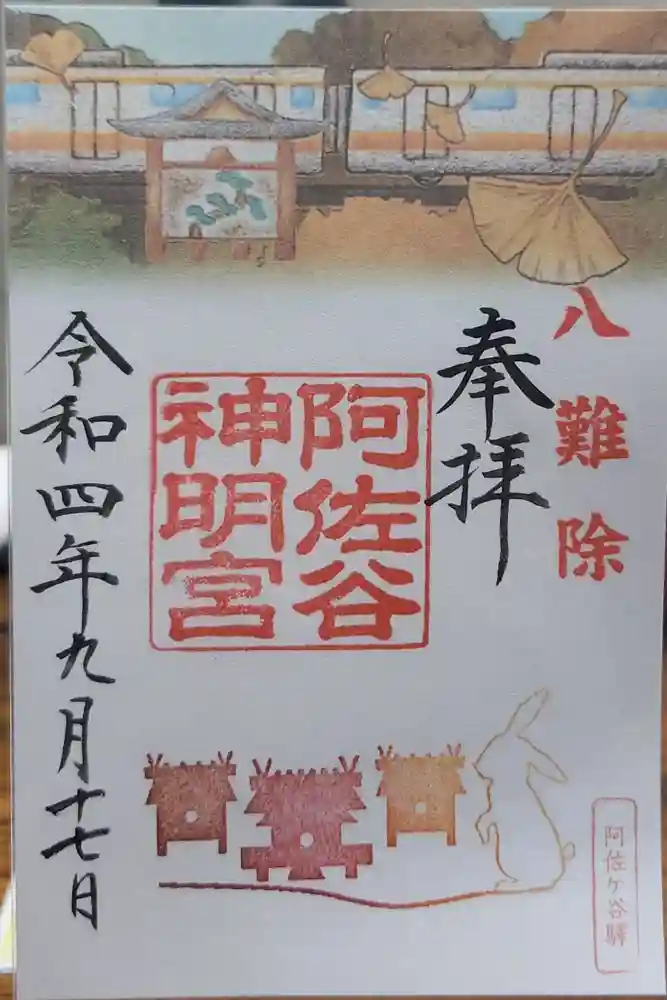 八難除
奉拝
阿佐谷
神明宮
令和四年九月十七日
阿佐ケ谷驛